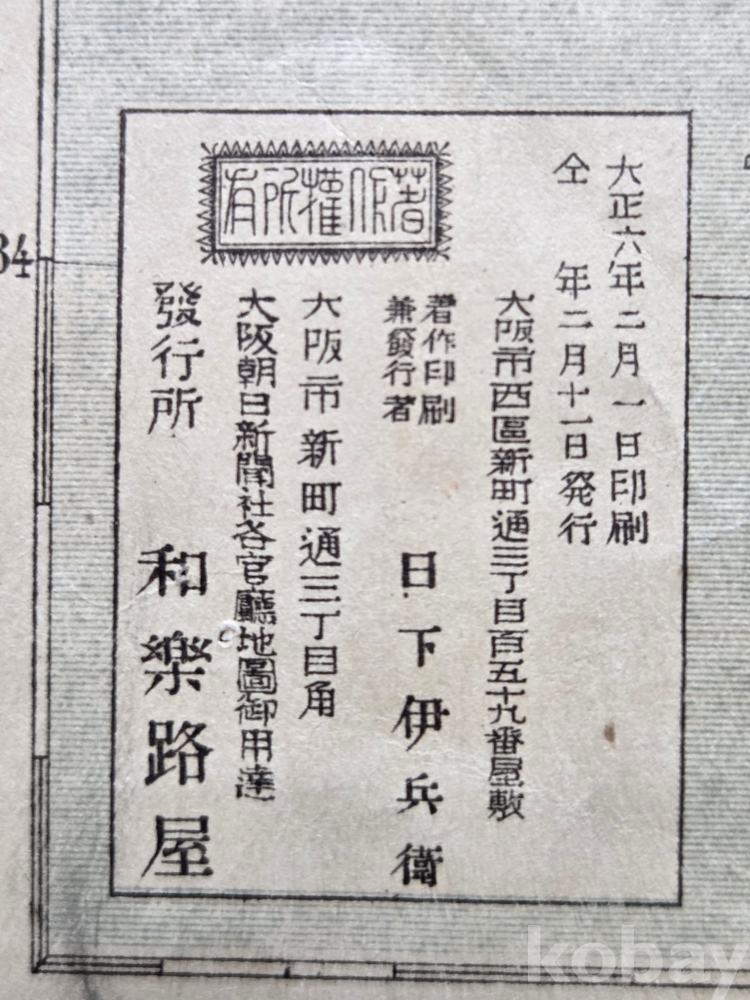 大正六年二月一日印刷
仝 年二月十一日発行
大阪市西區新町通三丁目百五十九番屋敷
著作印刷
兼發行者
日下伊兵衛
著作權所有
大阪市新町通三丁目角
大阪朝日新聞社各官廳地圖御用達
發行所 和樂路屋
34
kobay